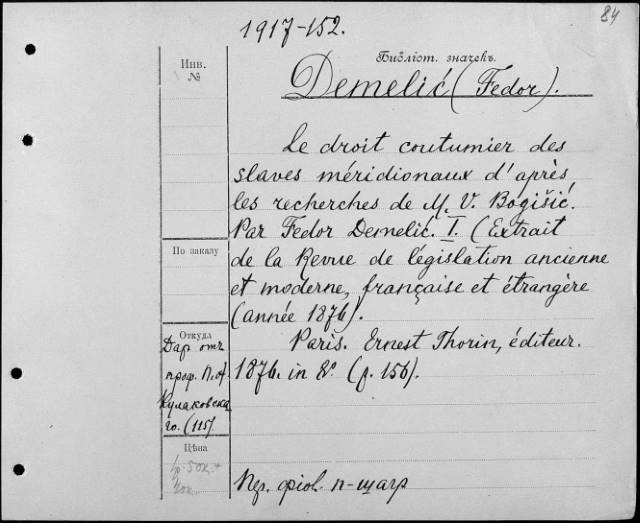 84
1917-152.
Инв.
№
Библіот. значекъ.
Demelić (Fedor).
Le droit coutumier des
slaves méridionaux d'après
les recherches de M. V. Bogišić.
Par Fedor Demelić. I. (Extrait
de la Revue de législation ancienne
et moderne, française et étrangère
(année 1876).
Paris. Ernest Thorin, éditeur.
1876. in 8º. (p. 156).
По заказу
Откуда
Дар отъ
проф. П. А.
Кулаковска
го. (115).
Цѣна
50к.
Пер.